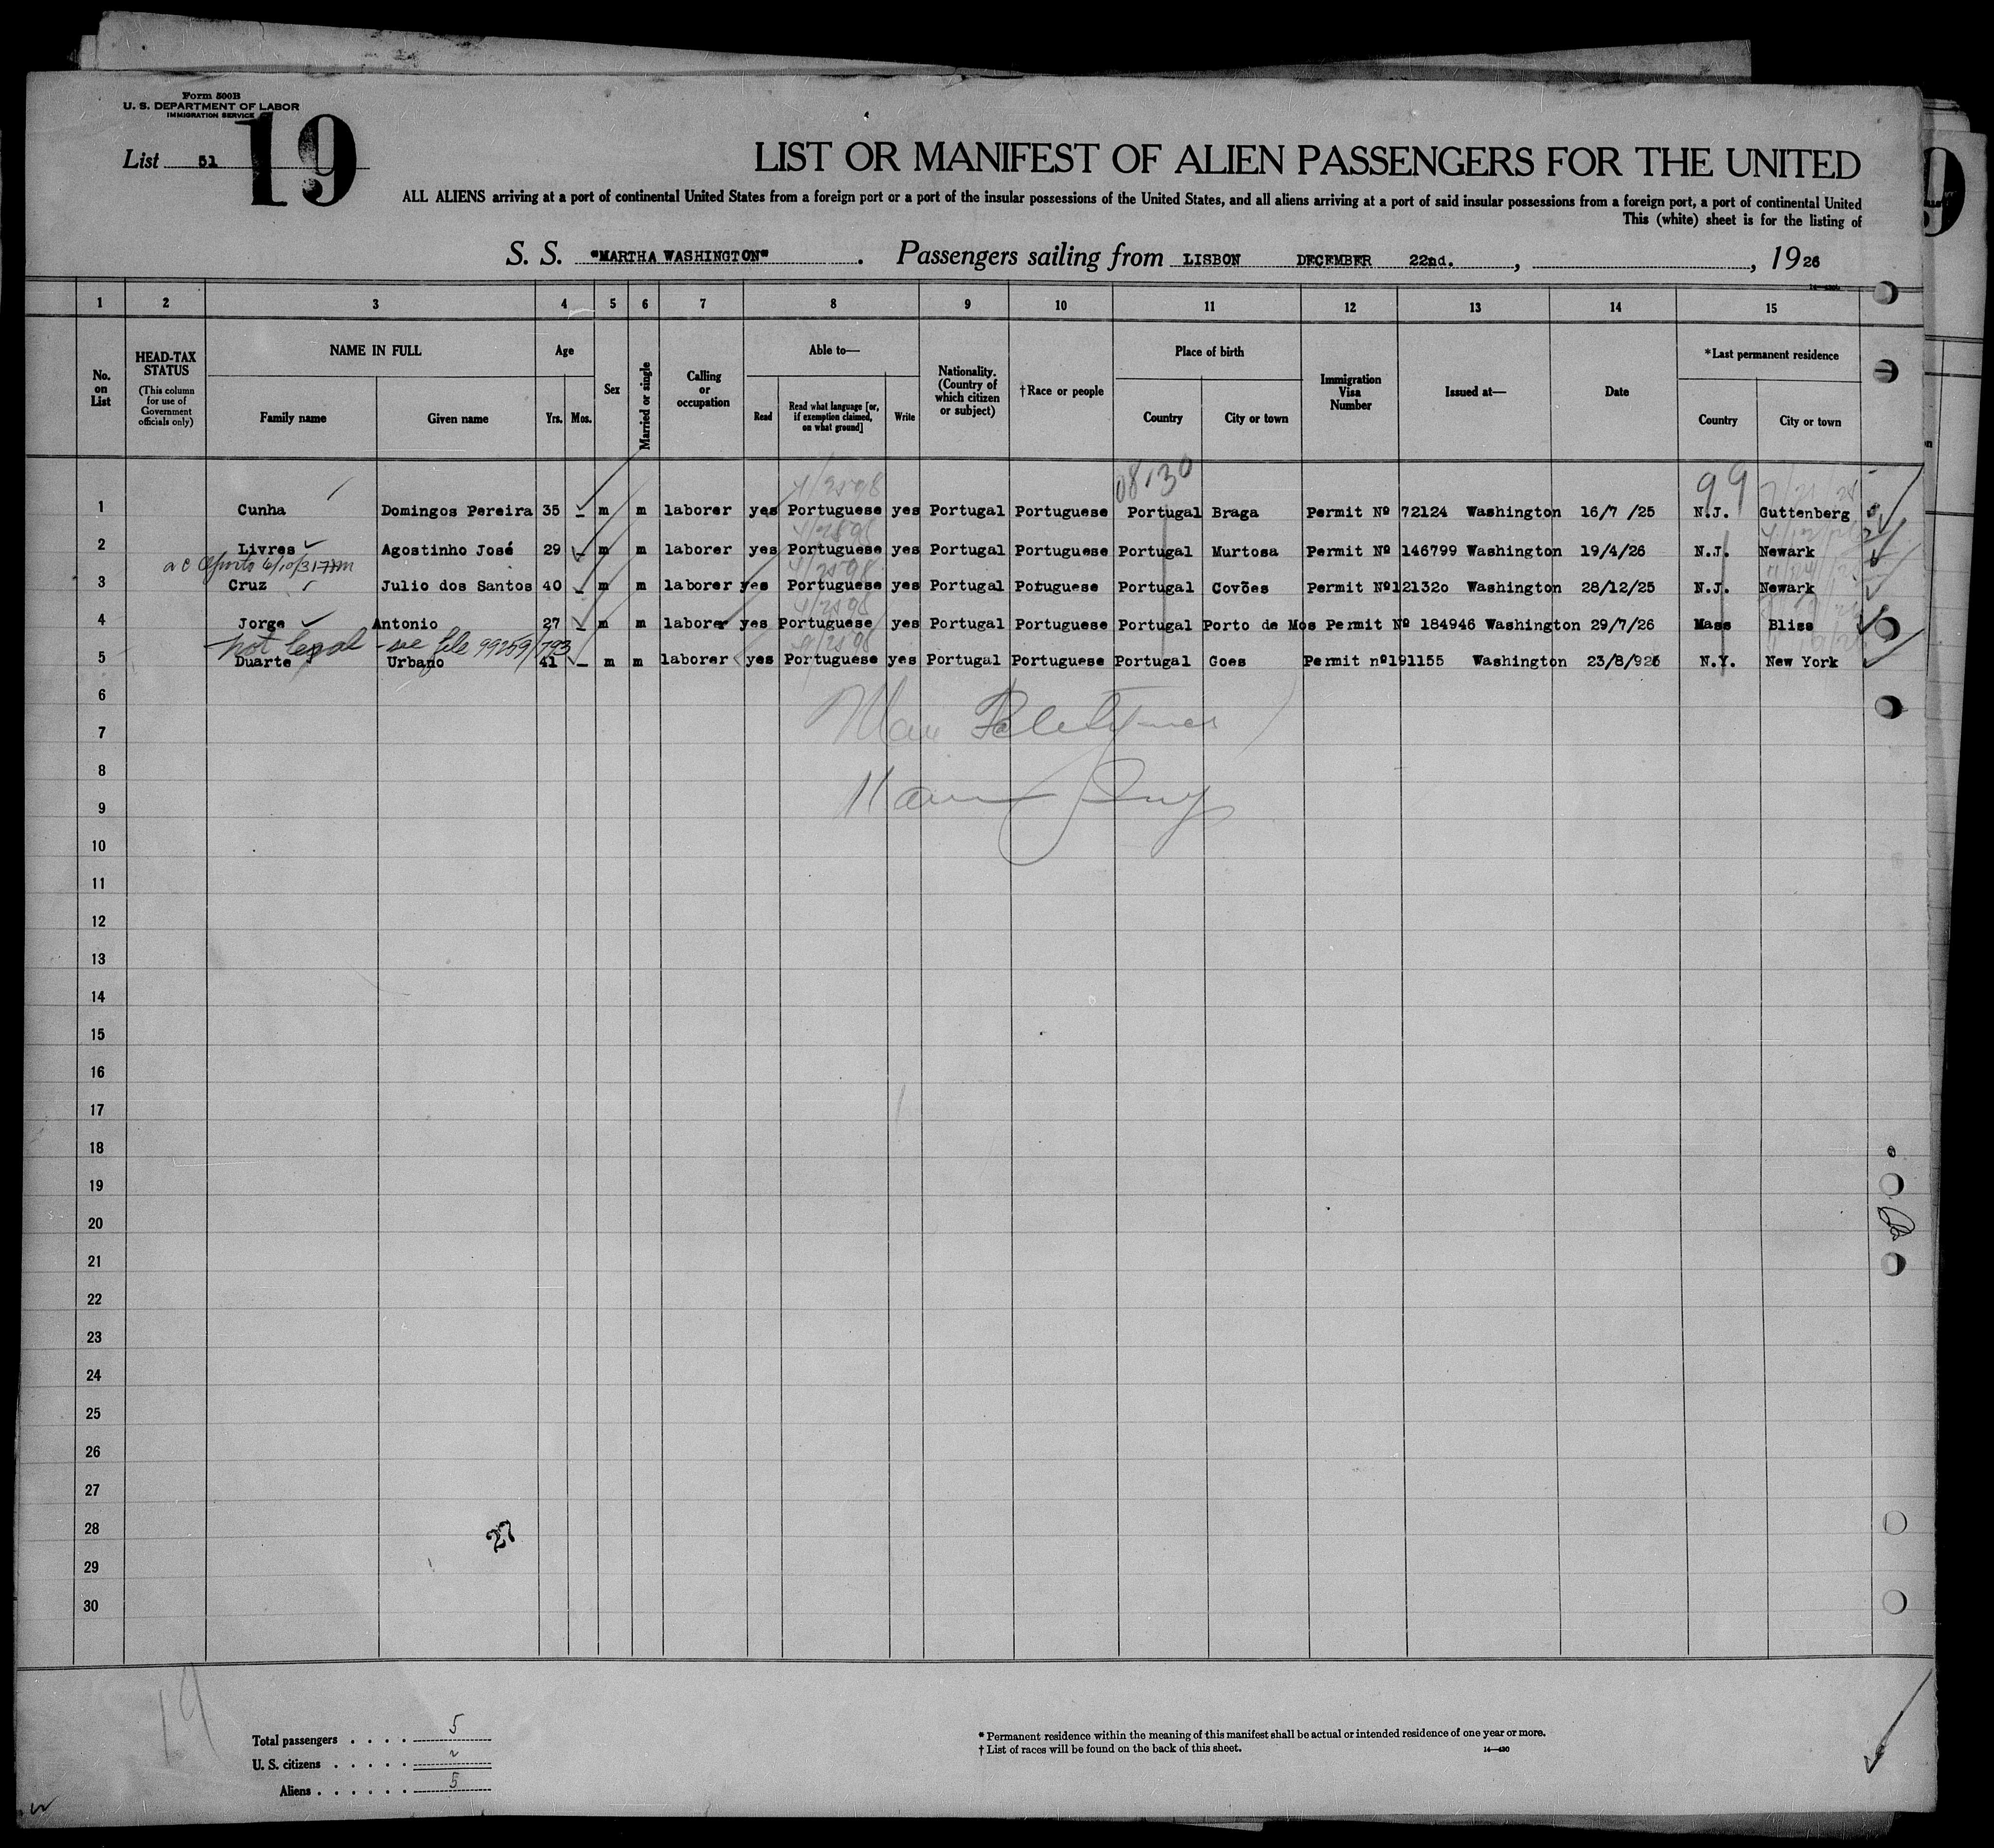 Form 500B
U. S. DEPARTMENT OF LABOR
IMMIGRATION SERVICE
19
List 51
LIST OR MANIFEST OF ALIEN PASSENGERS FOR THE UNITED
ALL ALIENS arriving at a port of continental United States from a foreign port or a port of the insular possessions of the United States, and all aliens arriving at a port of said insular possessions from a foreign port, a port of continental United
This (white) sheet is for the listing of
S. S. "MARTHA WASHINGTON". Passengers sailing from LISBON DECEMBER 22nd., , 1926
1 2 3 4 5 6 7 8 9 10 11 12 13 14 15
No. on List
HEAD-TAX STATUS (This column for use of Government officials only)
NAME IN FULL
Family name Given name
Age
Yrs. Mos.
Sex
Married or single
Calling or occupation
Able to—
Read Read what language [or, if exemption claimed, on what ground] Write
Nationality. (Country of which citizen or subject)
†Race or people
Place of birth
Country City or town
Immigration Visa Number
Issued at—
Date
*Last permanent residence
Country City or town
08130 99
1 Cunha Domingos Pereira 35 – m m laborer yes Portuguese yes Portugal Portuguese Portugal Braga Permit Nº 72124 Washington 16/7 /25 N.J. Guttenberg
2 Livres Agostinho José 29 – m m laborer yes Portuguese yes Portugal Portuguese Portugal Murtosa Permit Nº 146799 Washington 19/4/26 N.J. Newark
3 Cruz Julio dos Santos 40 – m m laborer yes Portuguese yes Portugal Potuguese Portugal Covões Permit Nº121320 Washington 28/12/25 N.J. Newark
4 Jorge Antonio 27 – m m laborer yes Portuguese yes Portugal Portuguese Portugal Porto de Mos Permit Nº 184946 Washington 29/7/26 Mass Bliss
not legal - see file 99259/793
5 Duarte Urbano 41 – m m laborer yes Portuguese yes Portugal Portuguese Portugal Goes Permit nº191155 Washington 23/8/926 N.Y. New York
6
7
8
9
10
11
12
13
14
15
16
17
18
19
20
21
22
23
24
25
26
27
28
27
29
30
19
Total passengers . . . . 5
U. S. citizens . . . . .
Aliens . . . . . . 5
* Permanent residence within the meaning of this manifest shall be actual or intended residence of one year or more.
† List of races will be found on the back of this sheet.
14—430